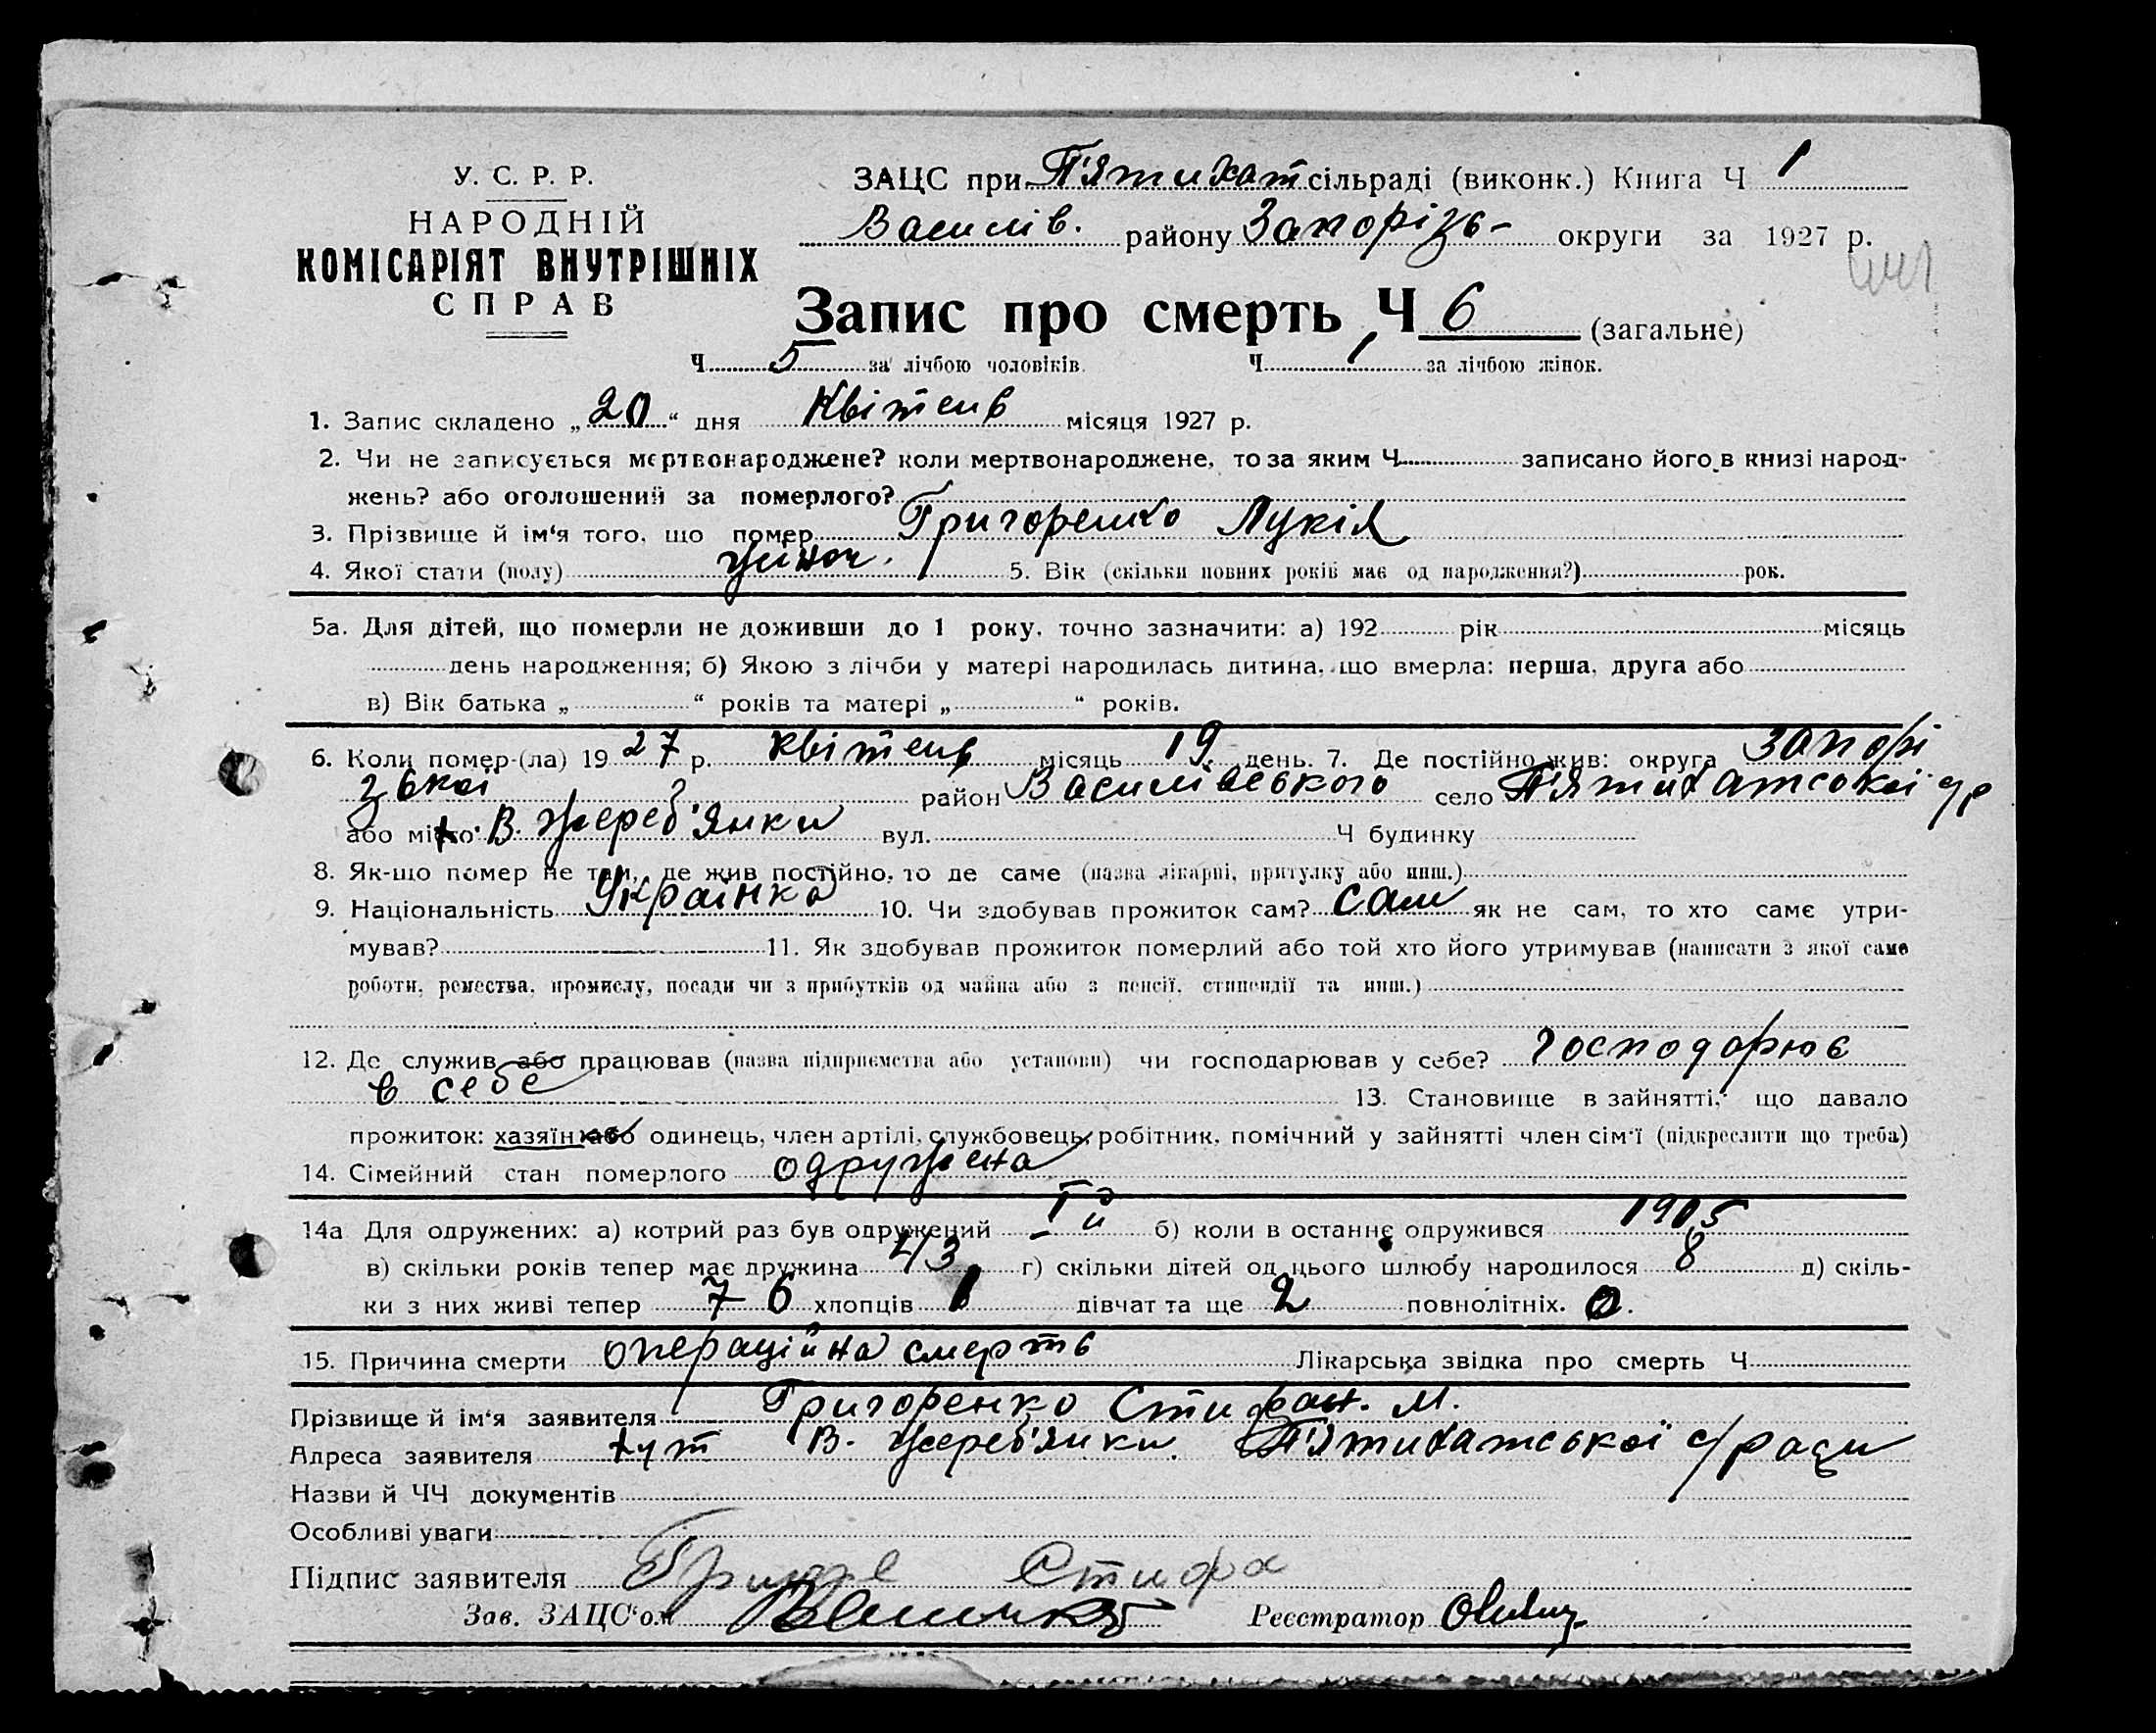 У. С. Р. Р.
НАРОДНІЙ
КОМІСАРІЯТ ВНУТРІШНІХ
СПРАВ
ЗАЦС при П'ятихат сільраді (виконк.) Книга Ч 1
Василів. району Запорізь- округи за 1927 р.
Запис про смерть Ч 6 (загальне)
Ч 5 за лічбою чоловіків. Ч 1 за лічбою жінок.
1. Запис складено „20“ дня Квітень місяця 1927 р.
2. Чи не записується мертвонароджене? коли мертвонароджене, то за яким Ч записано його в книзі народ-
жень? або оголошений за померлого?
3. Прізвище й ім‘я того, що помер Григоренко Лукія
4. Якої стати (полу) жіноч. 5. Вік (скільки повних років має од народження?) рок.
5а. Для дітей, що померли не доживши до 1 року, точно зазначити: а) 192 рік місяць
день народження; б) Якою з лічби у матері народилась дитина, що вмерла: перша, друга або
в) Вік батька „ “ років та матері „ “ років.
6. Коли помер-(ла) 19 27 р. квітень місяць 19 день. 7. Де постійно жив: округа Запорі
зької район Василівського село П'ятихатської с/р
або місто х. В. Жереб'янки вул. Ч будинку
8. Як-що помер не там, де жив постійно, то де саме (назва лікарні, притулку або инш.)
9. Національність Українка 10. Чи здобував прожиток сам? сам як не сам, то хто саме утри-
мував? 11. Як здобував прожиток померлий або той хто його утримував (написати з якої саме
роботи, ремества, промислу, посади чи з прибутків од майна або з пенсії, стипендії та инш.)
12. Де служив або працював (назва підприємства або установи) чи господарював у себе? господарює
в себе 13. Становище в зайнятті, що давало
прожиток: хазяїн або одинець, член артілі, службовець, робітник, помічний у зайнятті член сім‘ї (підкреслити що треба)
14. Сімейний стан померлого одружена
14а Для одружених: а) котрий раз був одружений I й б) коли в останнє одружився 1905
в) скільки років тепер має дружина 43 г) скільки дітей од цього шлюбу народилося 8 д) скіль-
ки з них живі тепер 7 6 хлопців 1 дівчат та ще 2 повнолітніх. 0.
15. Причина смерти операційна смерть Лікарська звідка про смерть Ч
Прізвище й ім‘я заявителя Григоренко Стифан. М.
Адреса заявителя хут В. Жереб'янки. П'ятихатської с/ради
Назви й ЧЧ документів
Особливі уваги
Підпис заявителя Стифа
Зав. ЗАЦС‘ом Реєстратор